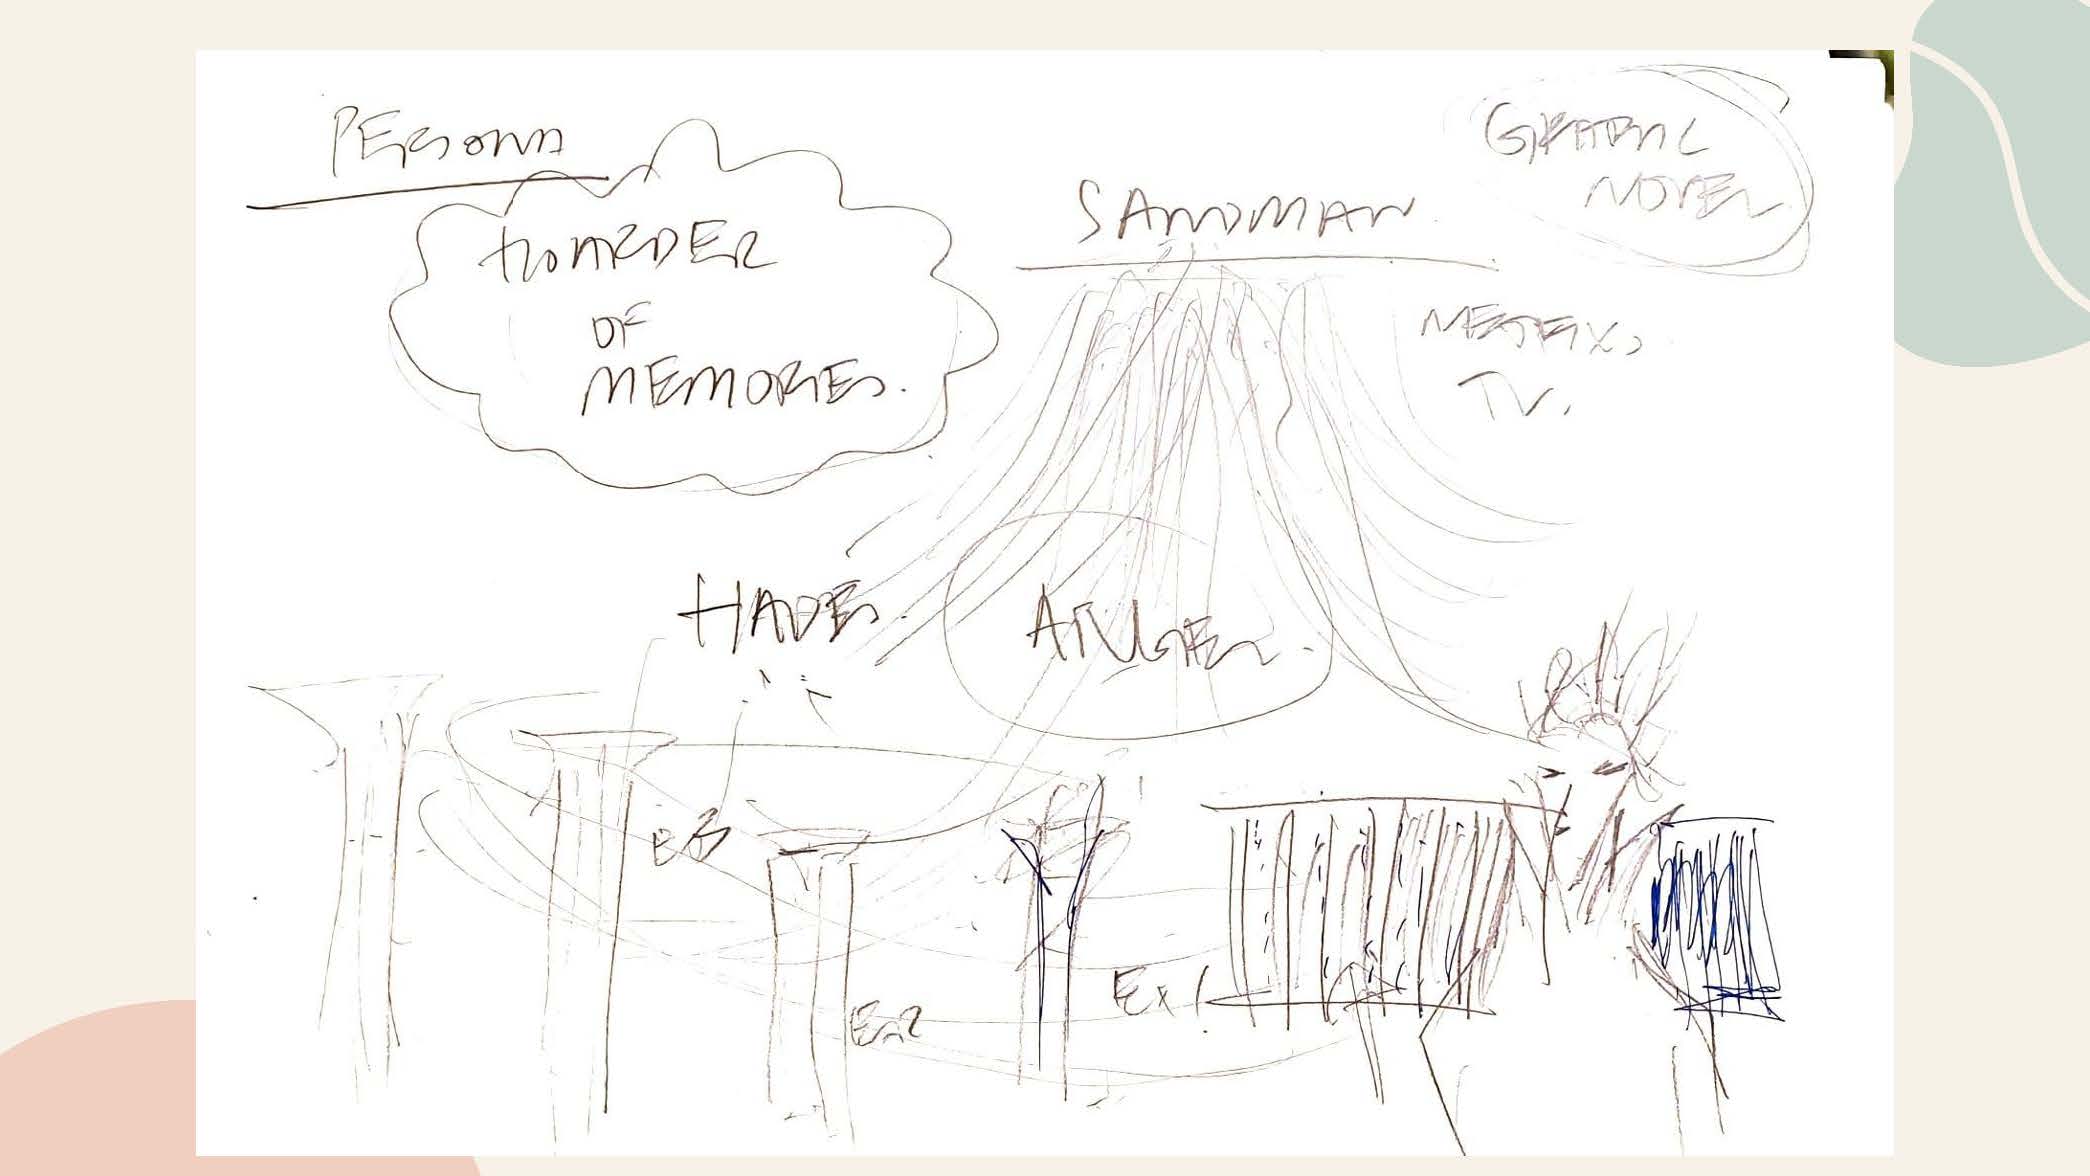 PERSONA
HOARDER
OF
MEMORIES.
SANDMAN.
GRAPHIC
NOVEL
NETFLIX
TV.
HADES.
ANGER.
Ex3
Ex2
Ex1